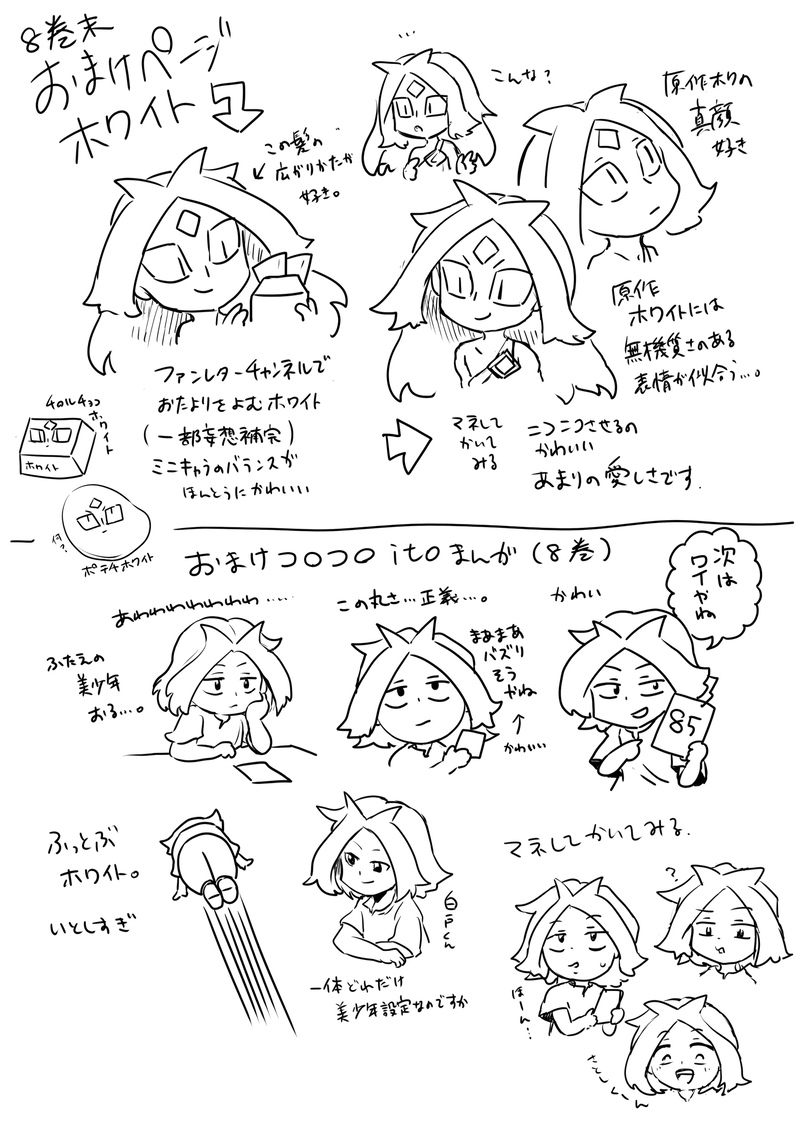 8巻末
おまけページ
ホワイト
この髪の
広がりかたが
好き。
こんな？
原作ホワの
真顔
好き
原作
ホワイトには
無機質さのある
表情が似合う…。
ファンレターチャンネルで
おたよりをよむホワイト
（一部妄想補完）
ミニキャラのバランスが
ほんとうにかわいい
マネして
かいて
みる
ニコニコさせるの
かわいい
あまりの愛しさです.
チロルチョコ
ホワイト
ホワイト
何？
ポテチホワイト
おまけコロコロitoまんが（8巻）
あわわわわわわわ……
ふたえの
美少年
おる…。
この丸さ…正義…。
まあまあ
バズり
そう
やね
↑
かわいい
かわい
次は
ワイやね
85
ふっとぶ
ホワイト。
いとしすぎ
白戸くん
一体どれだけ
美少年設定なのですか
マネしてかいてみる.
？
ほーん…
さとしくーん